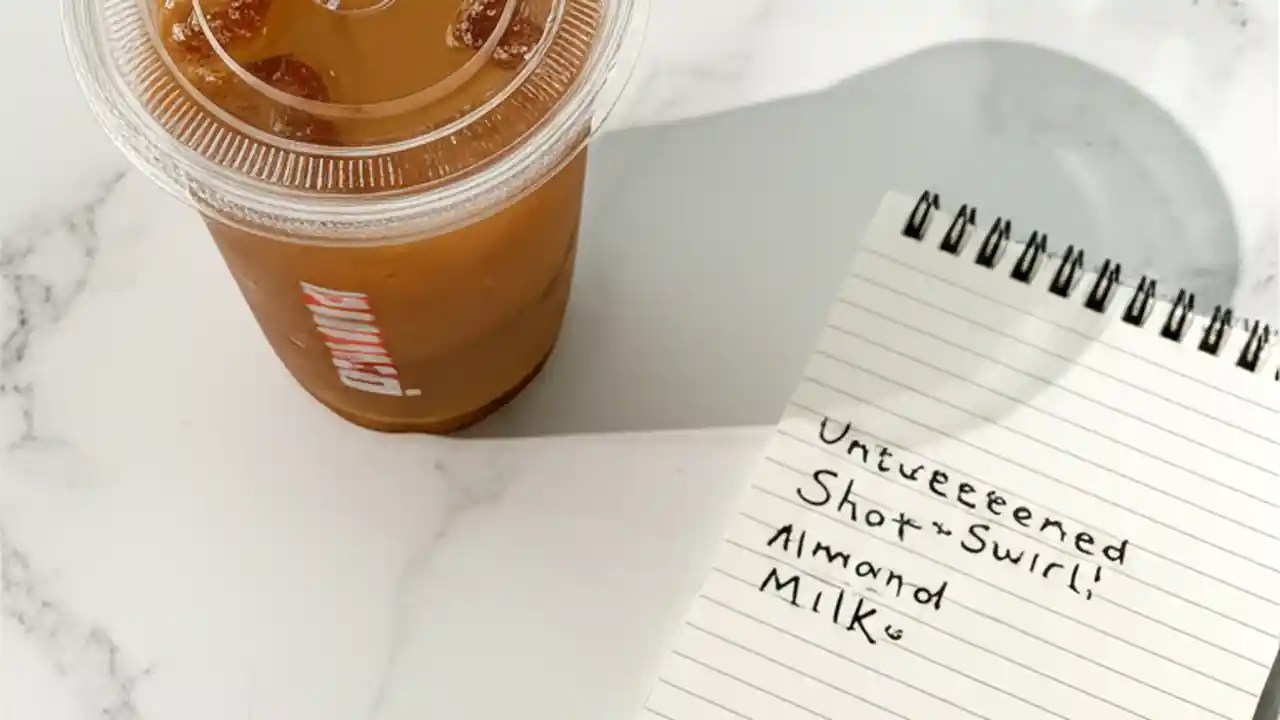 Untweeeened
Shot + Swirl!
Almand
Milk